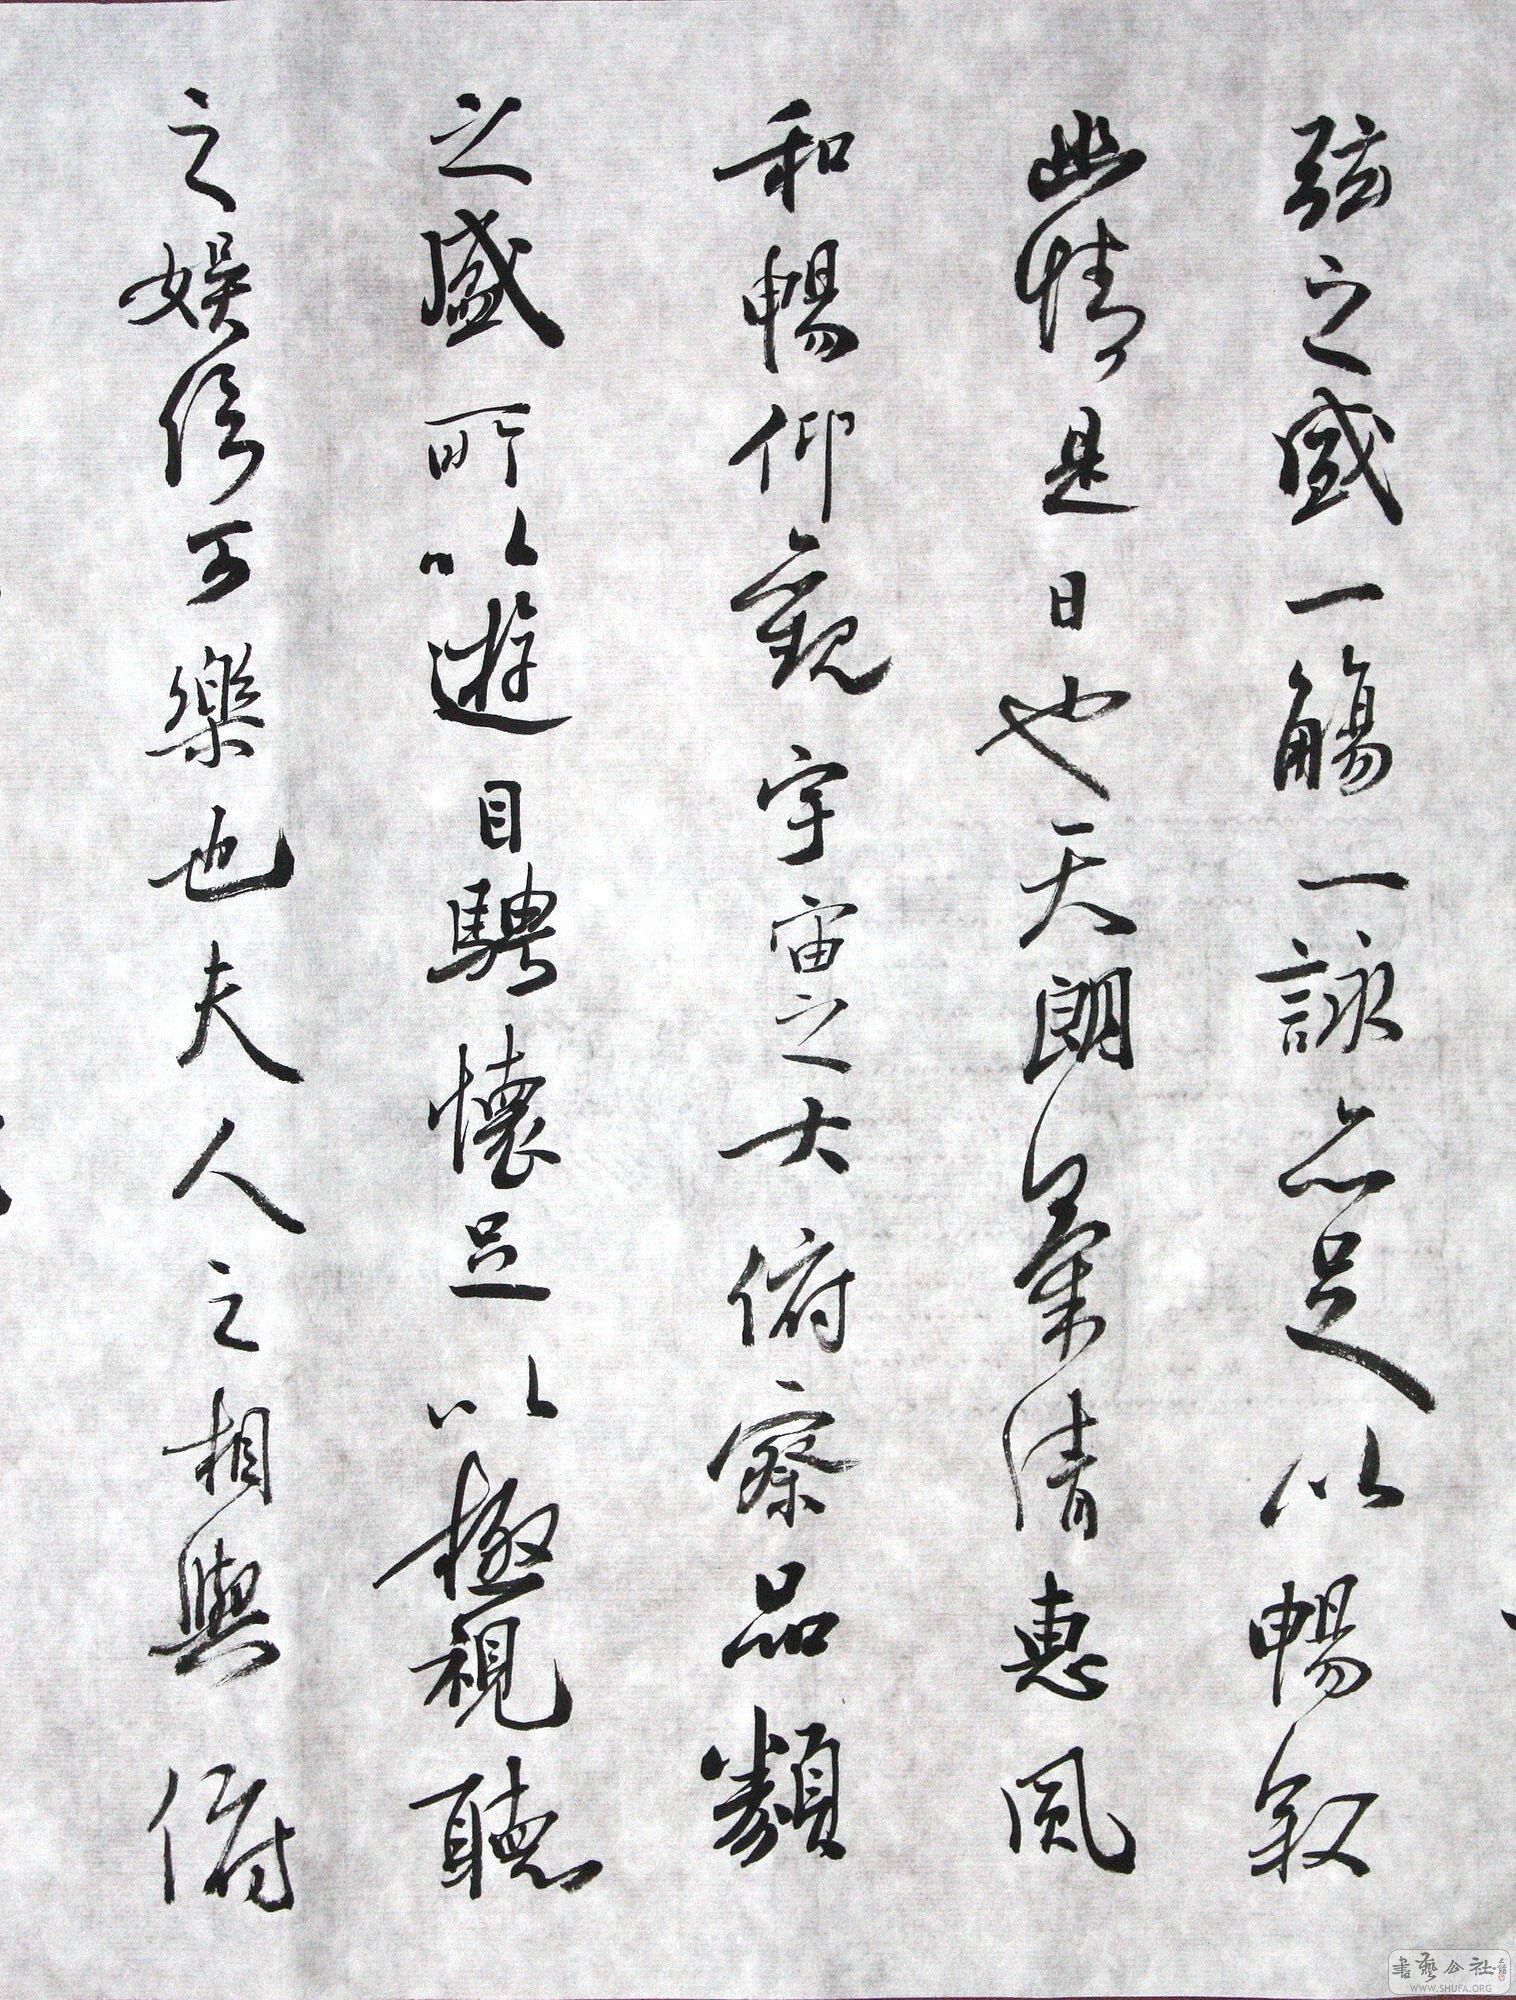 弦之盛一觴一詠亦足以暢敘
幽情是日也天朗氣清惠風
和暢仰觀宇宙之大俯察品類
之盛所以遊目騁懷足以極視聽
之娛信可樂也夫人之相與俯
書藝公社
WWW.SHUFA.ORG